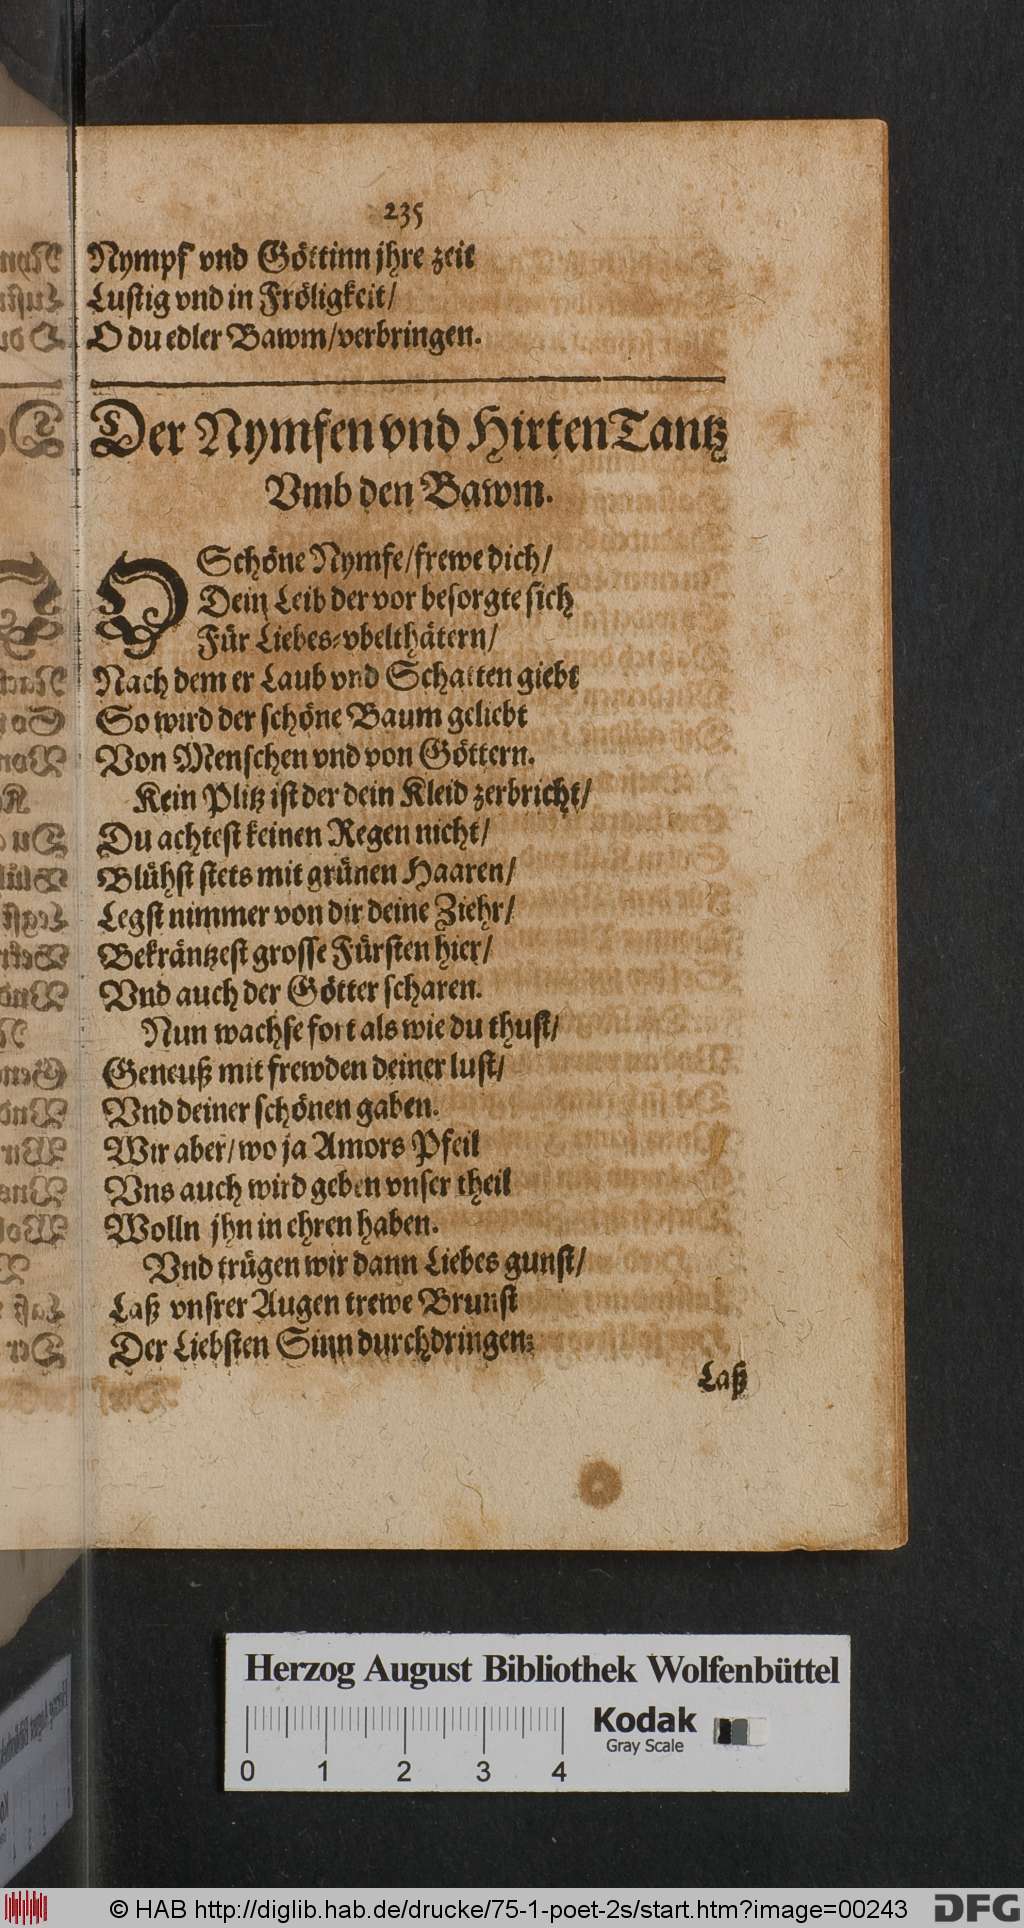 235
Nympf vnd Göttinn jhre zeit
Lustig vnd in Fröligkeit/
O du edler Bawm/verbringen.
Der Nymfen vnd Hirten Tantz
Vmb den Bawm.
O Schöne Nymfe/frewe dich/
Dein Leib der vor besorgte sich
Für Liebes-vbelthätern/
Nach dem er Laub vnd Schatten giebt
So wird der schöne Baum geliebt
Von Menschen vnd von Göttern.
Kein Plitz ist der dein Kleid zerbricht/
Du achtest keinen Regen nicht/
Blühst stets mit grünen Haaren/
Legst nimmer von dir deine Ziehr/
Bekräntzest grosse Fürsten hier/
Vnd auch der Götter scharen.
Nun wachse fort als wie du thust/
Geneuß mit frewden deiner lust/
Vnd deiner schönen gaben.
Wir aber/wo ja Amors Pfeil
Vns auch wird geben vnser theil
Wolln jhn in ehren haben.
Vnd trügen wir dann Liebes gunst/
Laß vnsrer Augen trewe Brunst
Der Liebsten Sinn durchdringen;
Laß
Herzog August Bibliothek Wolfenbüttel
0 1 2 3 4
Kodak
Gray Scale
© HAB http://diglib.hab.de/drucke/75-1-poet-2s/start.htm?image=00243
DFG